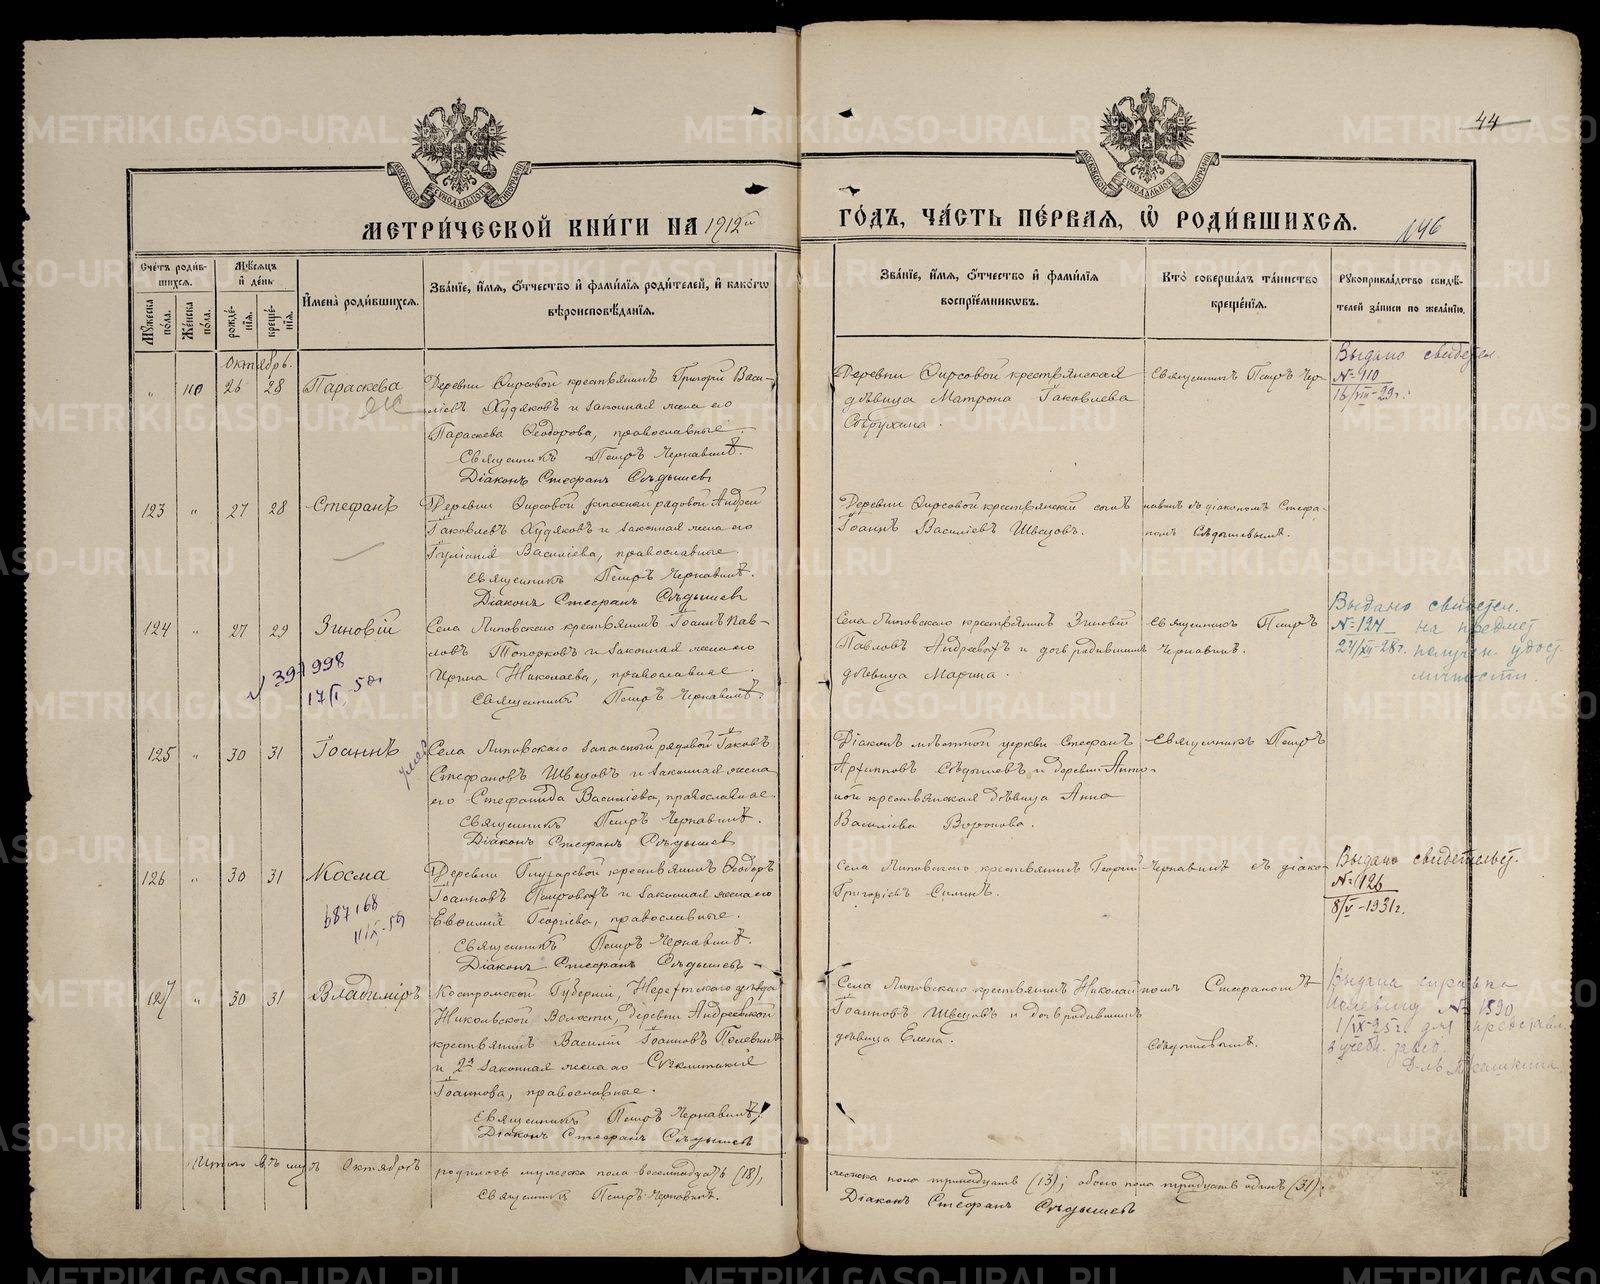 44
МЕТРИ́ЧЕСКОЙ КНИ́ГИ НА 1912й
ГО́ДЪ, ЧА́СТЬ ПЕ́РВАЯ, Ѡ҆ РОДИ́ВШИХСЯ.
146
Сче́тъ роди́в-
шихся.
Мꙋ́жеска по́ла.
Же́нска по́ла.
Мѣ́сяцъ
и҆ де́нь
рожде́нїя.
креще́нїя.
И҆мена̀ роди́вшихся.
Зва́нїе, и҆́мя, ѻ҆́тчество и҆ фами́лїя роди́телей, и҆ како́гѡ
вѣроисповѣ́данїя.
Зва́нїе, и҆́мя, ѻ҆́тчество и҆ фами́лїя
воспрїе́мникѡвъ.
Кто̀ соверша́лъ та́инство
креще́нїя.
Рꙋкоприкла́дство свидѣ́-
телей за́писи по жела́нїю.
Октябрь.
„ 110 26 28 Параскева
Деревни Фирсовой крестьянинъ Григорій Васи-
льевъ Худяковъ и законная жена его
Параскева Ѳеодорова, православные.
Священникъ Петръ Чернавинъ.
Діаконъ Стефанъ Сѣдышевъ
Деревни Фирсовой крестьянская
дѣвица Матрона Іаковлева
Священникъ Петръ Чер-
Выдано свидетел.
№ 110
16/VIII-29г.
123 „ 27 28 Стефанъ
Деревни Фирсовой запасной рядовой Андрей
Іаковлевъ Худяковъ и законная жена его
Іуліанія Василіева, православные.
Священникъ Петръ Чернавинъ.
Діаконъ Стефанъ Сѣдышевъ
Деревни Фирсовой крестьянскій сынъ
Іоаннъ Василіевъ Швецовъ.
навинъ съ діакономъ Стефа-
номъ Сѣдышевымъ.
124 „ 27 29 Зиновій
397998
17/I 50г
Села Липовскаго крестьянинъ Іоаннъ Пав-
ловъ Топорковъ и законная жена его
Ирина Николаева, православные.
Священникъ Петръ Чернавинъ.
Села Липовскаго крестьянинъ Зиновій
Павловъ Андреевыхъ и дочь родившихъ
дѣвица Марина.
Священникъ Петръ
Чернавинъ.
Выдано свидетел.
№ 124 на предмет
24/XII-28г. получен. удост.
личности.
125 „ 30 31 Іоаннъ
Села Липовскаго запасной рядовой Іаковъ
Стефановъ Швецовъ и законная жена
его Стефанида Василіева, православные.
Священникъ Петръ Чернавинъ.
Діаконъ Стефанъ Сѣдышев
Діаконъ мѣстной церкви Стефанъ
Архипповъ Сѣдышевъ и деревни Анто-
ной крестьянская дѣвица Анна
Василіева Воронова.
Священникъ Петръ
126 „ 30 31 Косма
687168
11/IX-50
Деревни Глухарёвой крестьянинъ Ѳеодоръ
Іоанновъ Петровыхъ и законная жена его
Евѳимія Георгіева, православные.
Священникъ Петръ Чернавинъ.
Діаконъ Стефанъ Сѣдышевъ
Села Липовскаго крестьянинъ Георгій
Григоріевъ Силинъ.
Чернавинъ съ діако-
Выдано свидетельст.
№ 126
8/V-1931г.
127 „ 30 31 Владиміръ
Костромской Губерніи, Нерехтскаго уѣзда
Никольской Волости, деревни Андреевской
крестьянинъ Василій Іоанновъ Полевинъ
и 2я законная жена его Сѵнклитикія
Іоаннова, православные.
Священникъ Петръ Чернавинъ
Діаконъ Стефанъ Сѣдышев
Села Липовскаго крестьянинъ Николай
Іоанновъ Швецовъ и дочь родившихъ
дѣвица Елена.
номъ Стефаномъ
Сѣдышевымъ.
Выдана справка
Полевину № 1390
1/IX-25г. для представл.
в учебн. завед.
Итого въ м-цѣ Октябрѣ родилось мужеска пола восемнадцать (18),
женска пола тринадцать (13); обоего пола тридцать одинъ (31).
Священникъ Петръ Чернавинъ.
Діаконъ Стефанъ Сѣдышевъ
METRIKI.GASO-URAL.RU